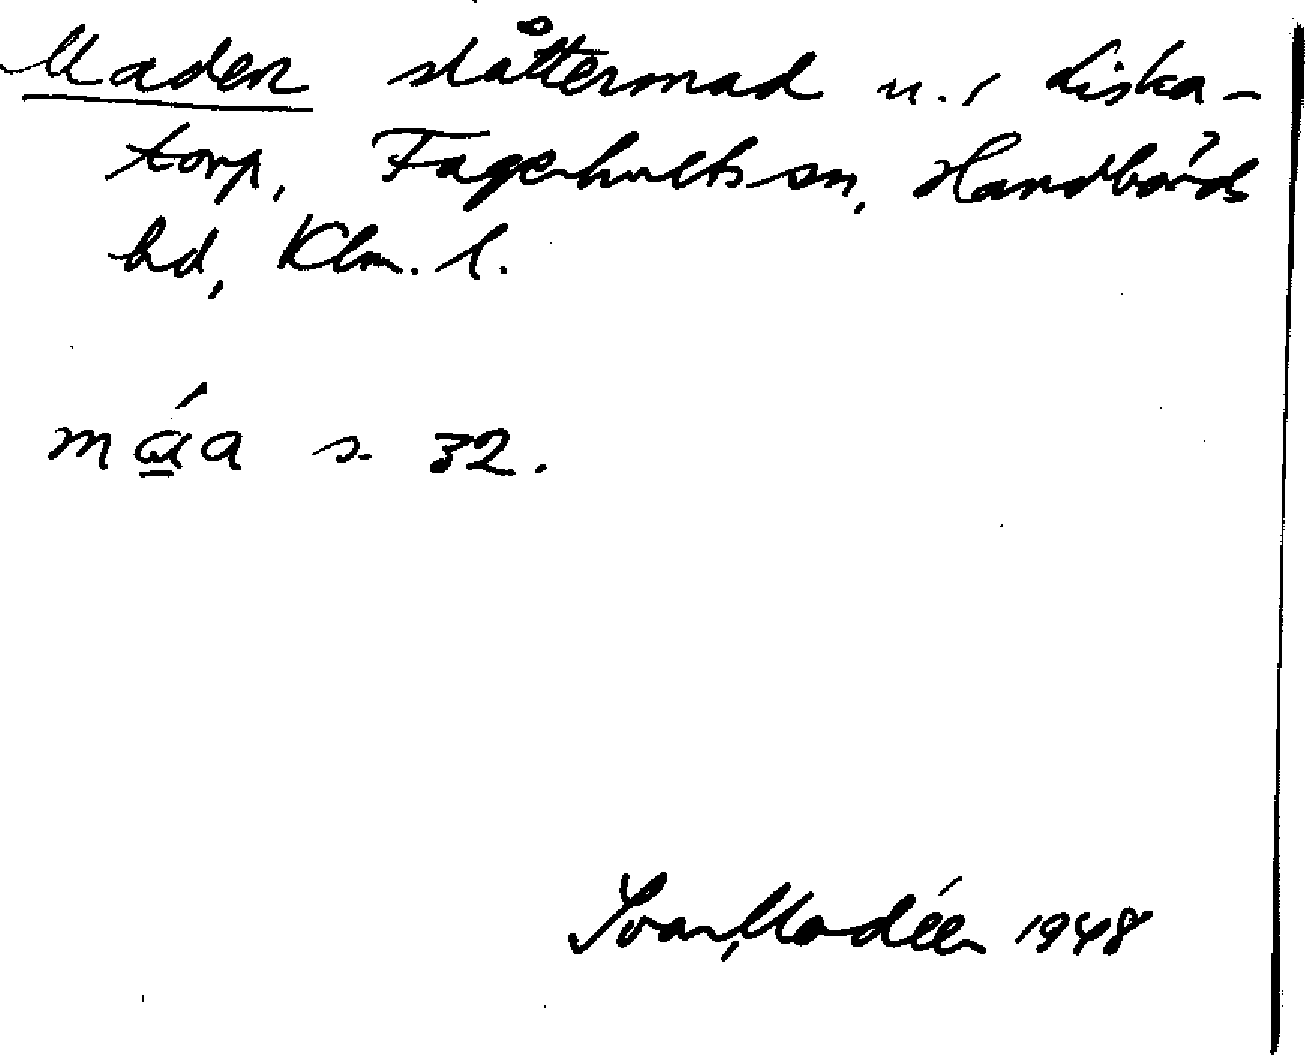 Maden slåttermad u. / Liska-
torp, Fagerhults sn, Handbörds
hd, Klm. l.
máa s. 32.
Ivar Modéer 1948